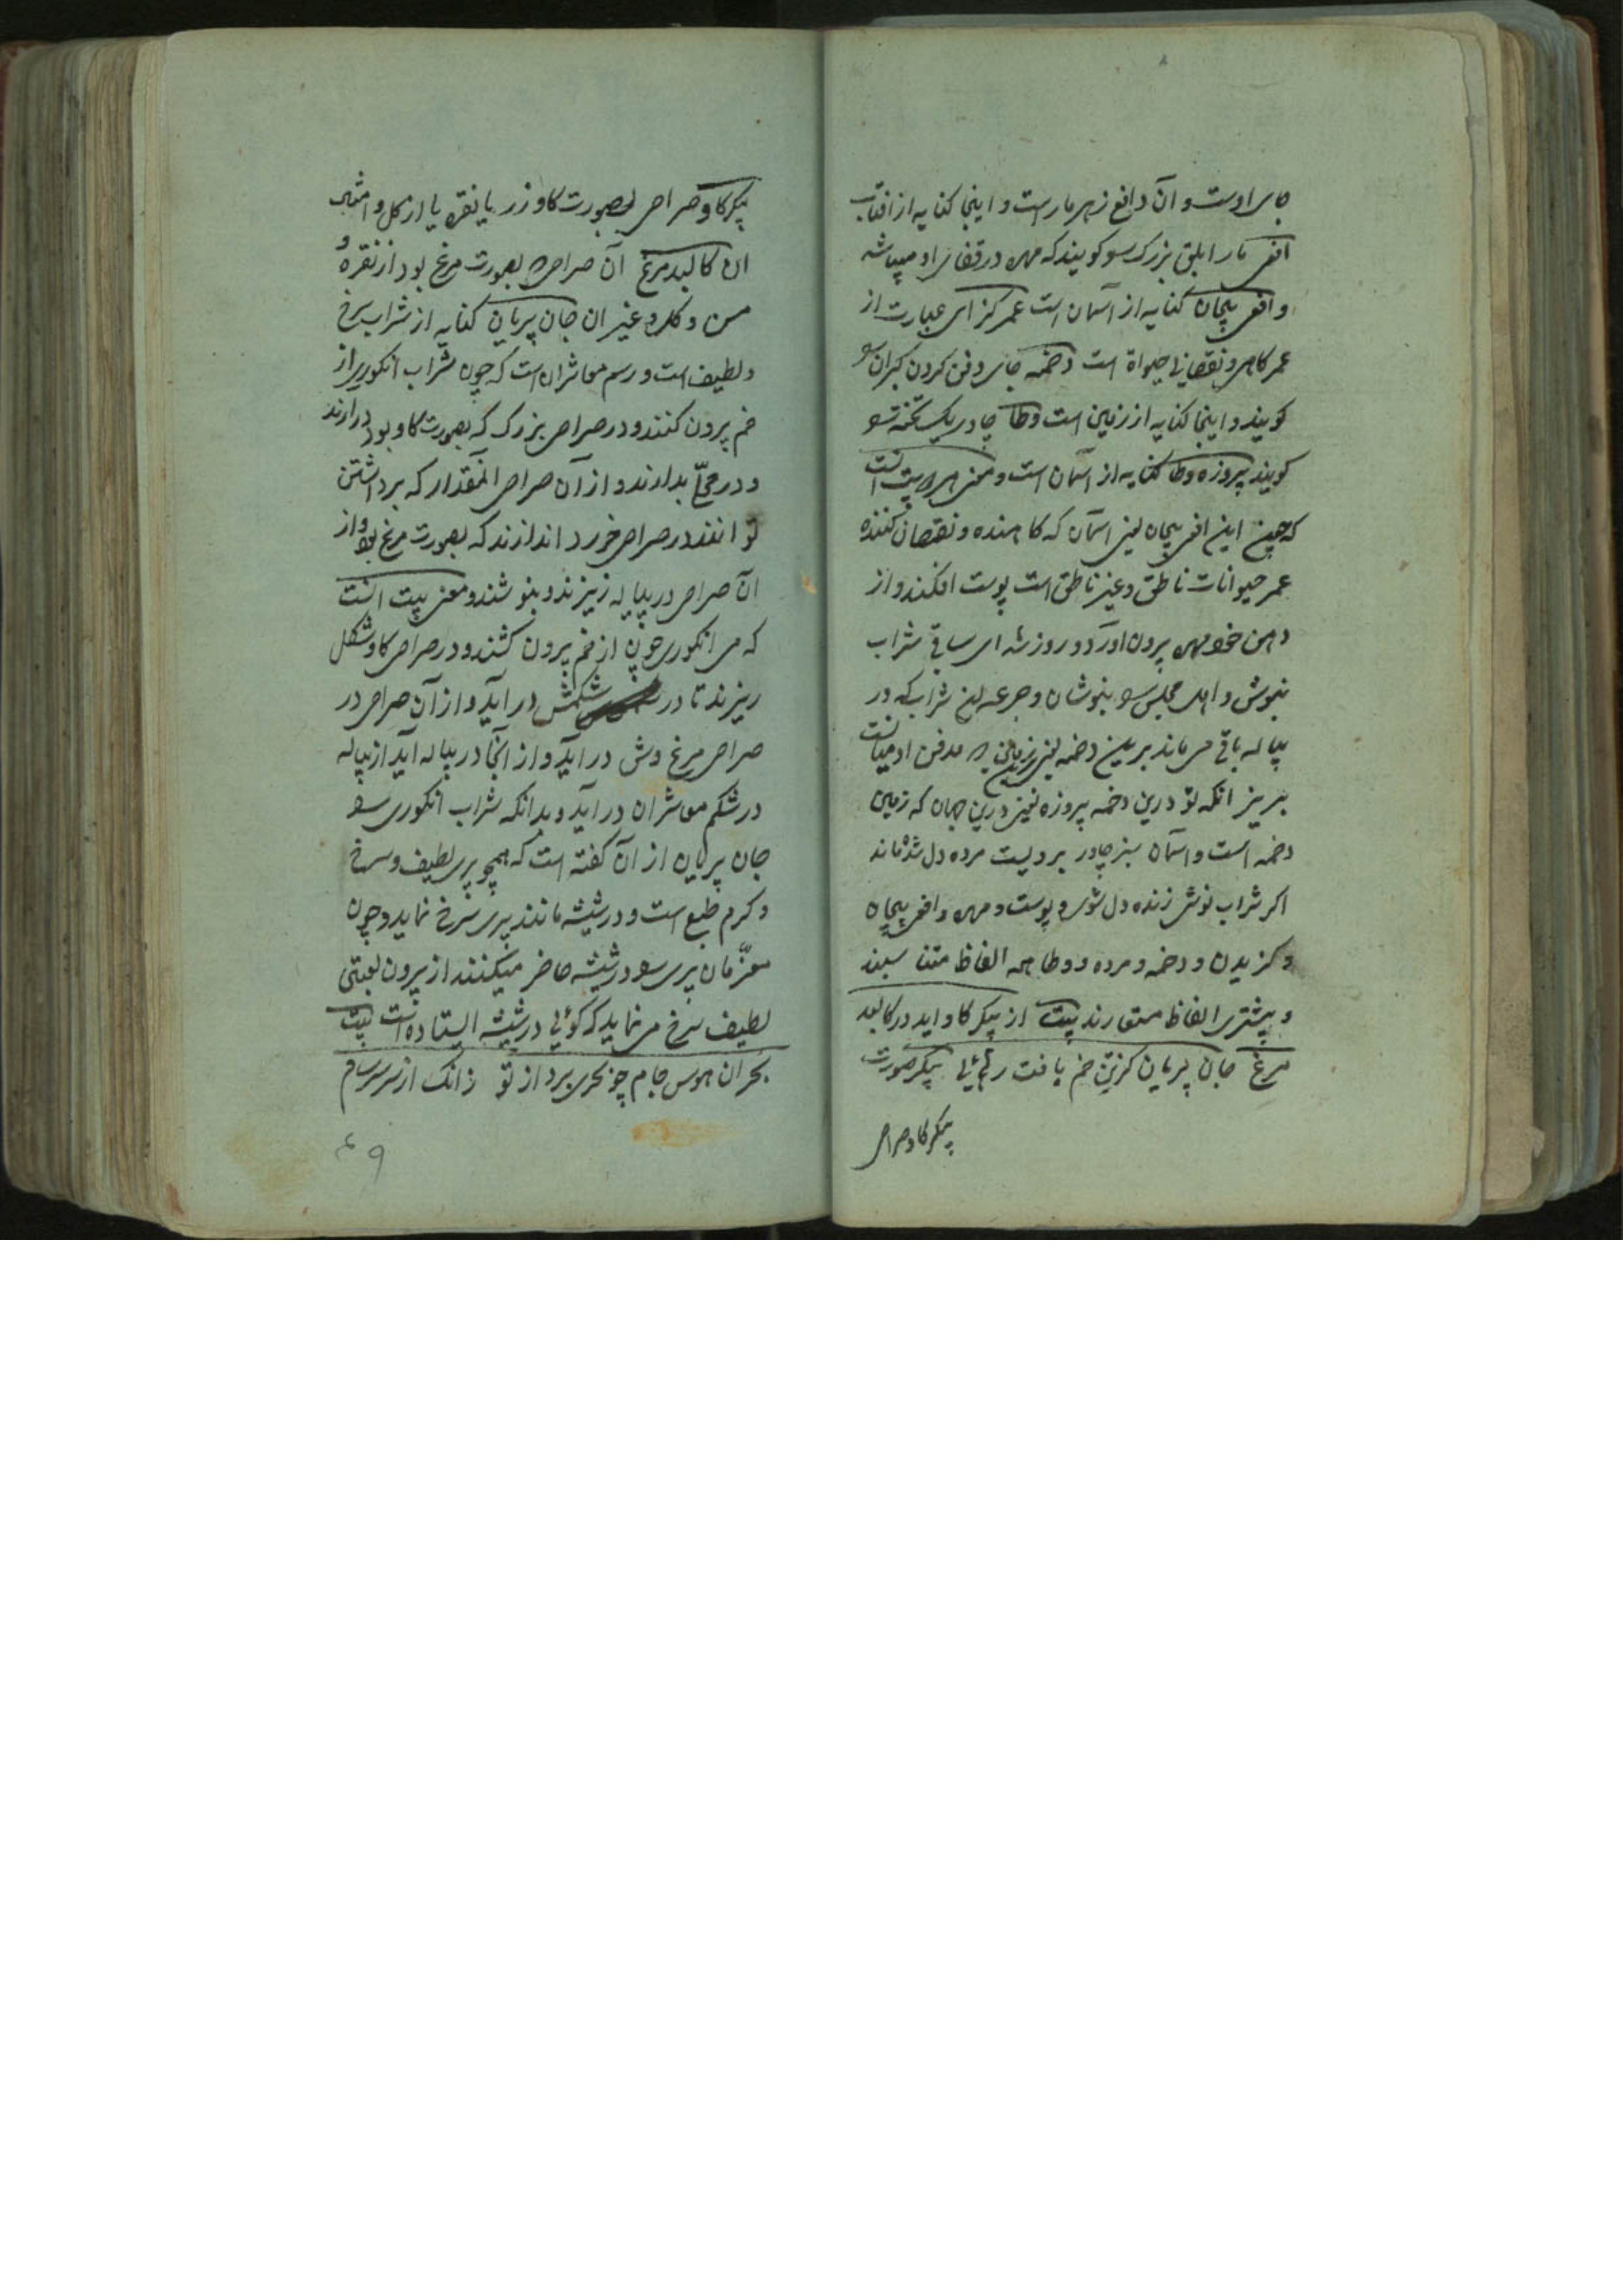 جای اوست و آن دافع زهر مار است و اینجا کنایه از افتاب
افعی مار ابلق بزرک را کویند که مهره در قفای او میباشد
و افعی پیچان کنایه از آسمان است عمر کزای عبارت از
عمر کاهی و نقصانی حیواة است دخمه جای دفن کردن کبران را
کویند و اینجا کنایه از زمین است وطا چادر یک تخته را
کویند پیروزه وطا کنایه از آسمان است و معنی بیت انست
که چون این افعی پیچان یعنی اسمان که کاهنده و نقصان کننده
عمر حیوانات ناطق و غیر ناطق است پوست افکند و از
دهن خود مهره بیرون اورد و روز شد ای ساقی شراب
بنوش و اهل مجلس را بنوشان و جرعه یعنی شراب که در
پیاله باقی می ماند برین دخمه یعنی زمین که مدفن ادمیانست
بریز انکه تو درین دخمه پیروزه یعنی درین جهان که زمین
دخمه است و اسمان سبز چادر برویست مرده دل شده ماند
اکر شراب نوشی زنده دل شوی و پوست و مهره و افعی پیچان
و کزیدن و دخمه و مرده و وطا همه الفاظ متناسبند
و بیشتری الفاظ مستعارند بیت از پیکر کاو اید در کالبد
مرغ جان پریان کزتن خم یافت رهائی پیکر صورت
پیکر کاو صراحی
پیکر کاو صراحی بصورت کاو زر یا نقره یا از کل و امثال
ان کالبد مرغ آن صراحی که بصورت مرغ بود از نقره و
مس و کل و غیر ان جان پریان کنایه از شراب سرخ
و لطیف است و رسم معاشران است که چون شراب انکوری از
خم بیرون کنند و در صراحی بزرک که بصورت کاو بود درارند
و در محل بدارند و از آن صراحی آنمقدار که برداشتن
توانند در صراحی خورد اندازند که بصورت مرغ بود و از
ان صراحی در پیاله ریزند و بنوشند و معنی بیت انست
که می انکوری چون از خم بیرون کشند و در صراحی کاو شکل
ریزند تا در شکمش در اید و از آن صراحی در
صراحی مرغ وش در اید و از آنجا در پیاله آید از پیاله
در شکم معاشران در آید و بدانکه شراب انکوری را
جان پریان از آن کفته است که همچو پری لطیف و سرخ
و کرم طبع است و در شیشه مانند پری سرخ نماید و چون
معزّمان پری را در شیشه حاضر میکنند از بیرون لعبتی
لطیف سرخ می نماید که کوئی در شیشه ایستاده است بیت
بحران هوس جام چو بحری برد از تو زانک از سر سرسام
۴۹